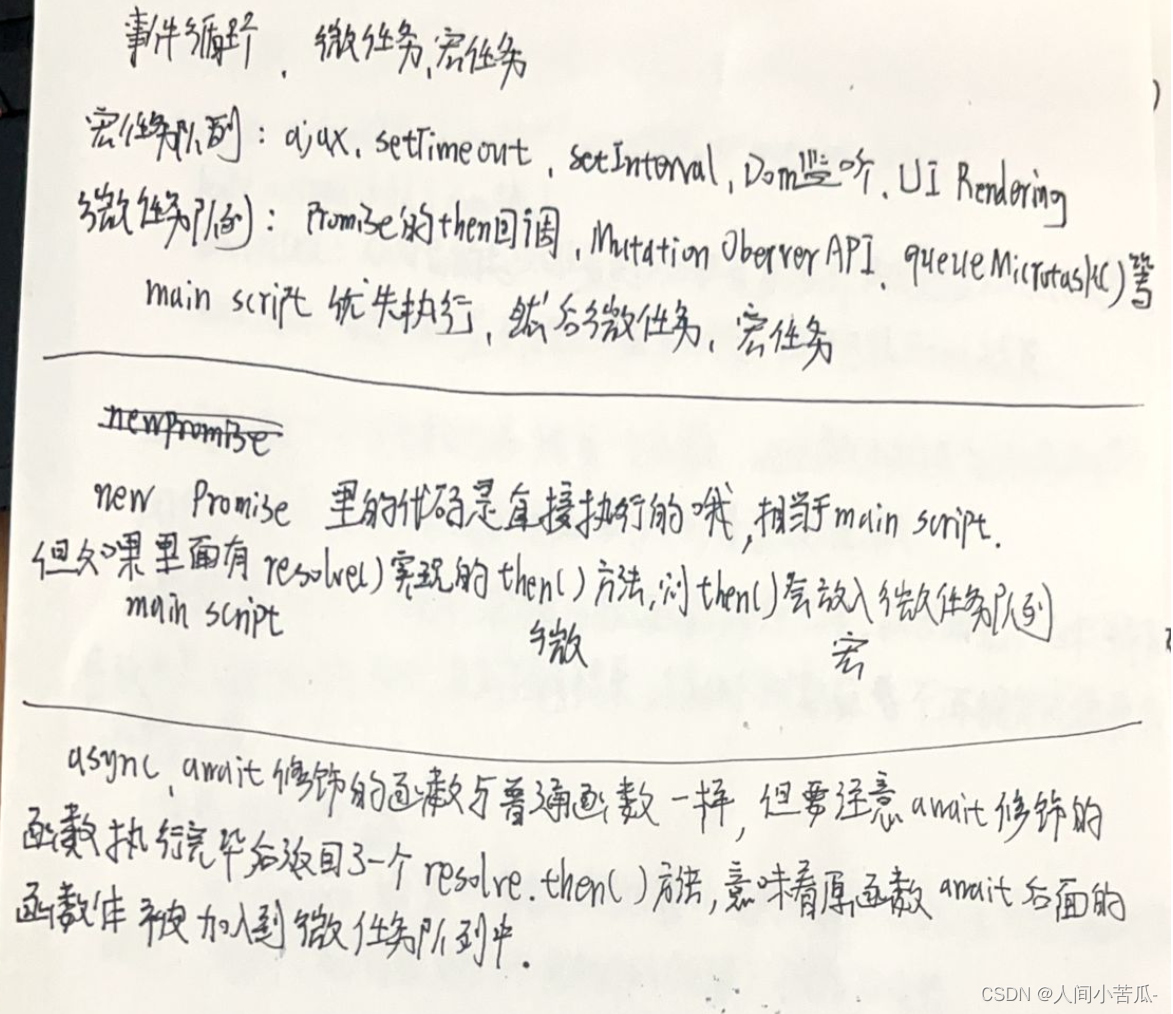 事件循环、微任务、宏任务
宏任务队列：ajax、setTimeout、setInterval、Dom监听、UI Rendering
微任务队列：Promise的then回调、Mutation Oberver API、queueMicrotask()等
main script 优先执行、然后微任务、宏任务
newPromise
new Promise 里的代码是直接执行的哦,相当于main script.
但如果里面有 resolve()实现的then()方法,则then()会放入微任务队列
main script 微 宏
async、await修饰的函数与普通函数一样,但要注意await修饰的
函数执行完毕后返回了一个resolve.then()方法,意味着原函数await后面的
函数体被加入到微任务队列中.
CSDN @人间小苦瓜-